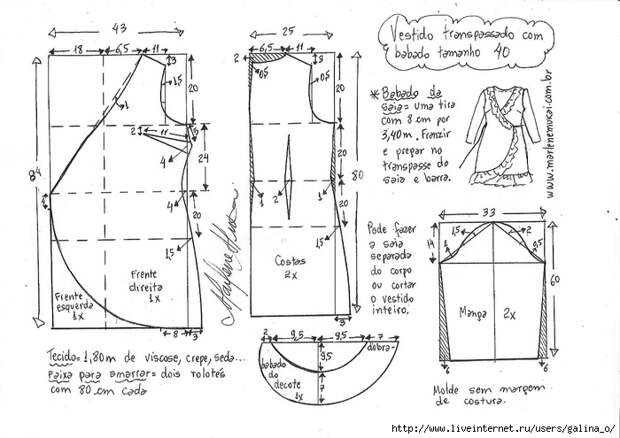 43
18
6,5
11
3
15
20
1
2
11
15
4
24
84
4
4
20
15
Frente
direita
1x
Frente
esquerda
1x
8
3
25
6,5
11
2
05
3
05
20
20
80
1
2
1
20
15
Costas
2x
3
Vestido transpassado com
babado tamanho 40
* Babado da
saia = uma tira
com 8 cm por
3,40m. Franzir
e pregar no
transpasse da
saia e barra.
www.marlenemukai.com.br
Pode fazer
a saia
separada
do corpo
ou cortar
o vestido
inteiro.
33
14
1,5
2
1
0,5
60
Manga
2x
6
6
Molde sem margem
de costura.
Tecido = 1,80m de viscose, crepe, seda...
Faixa para amarrar = dois rolotês
com 80 cm cada
2
9,5
9,5
7
dobra
9,5
7
babado
do
decote
1x
http://www.liveinternet.ru/users/galina_o/